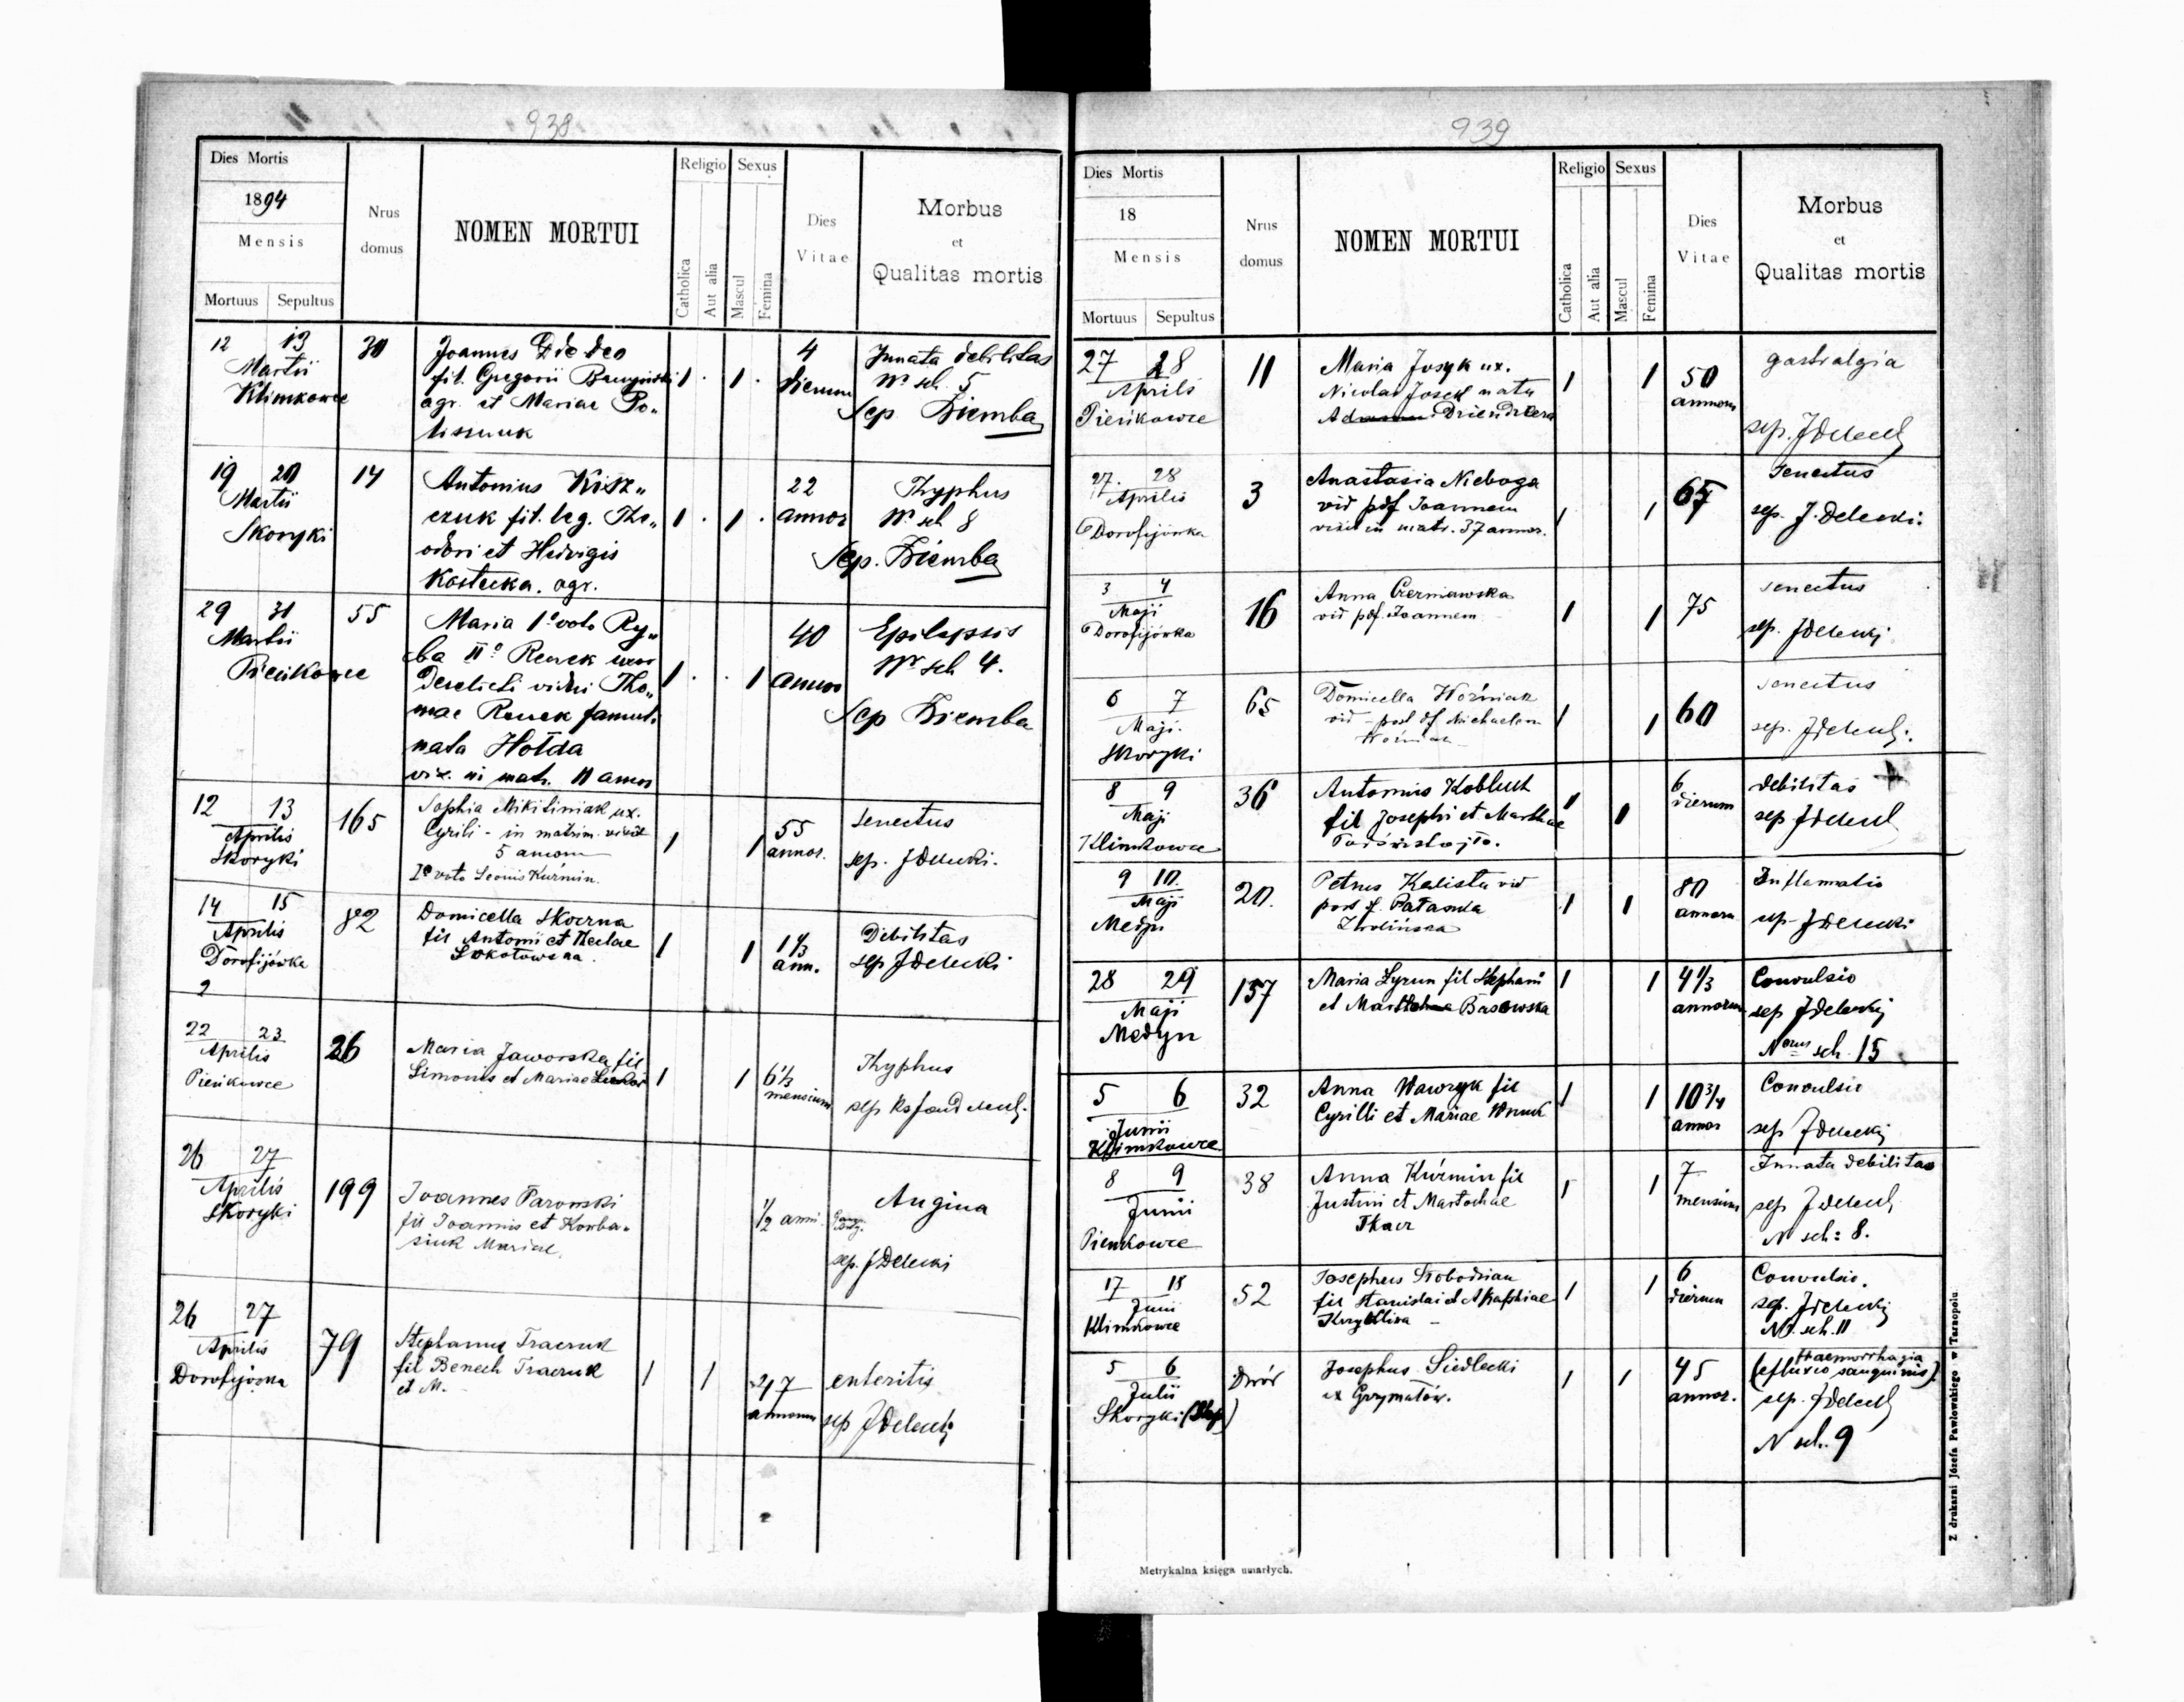 938
Dies Mortis
1894
Mensis
Mortuus Sepultus
Nrus
domus
NOMEN MORTUI
Religio
Catholica
Aut alia
Sexus
Mascul
Femina
Dies
Vitae
Morbus
et
Qualitas mortis
12 13
Martii
Klimkowce
30
Joannes Dideo
fil. Gregorii
agr. et Mariae Po„
liszuuk
1 . 1 .
4
dierum
Innata debilitas
Nr sch. 5
Sep Ziemba
19 20
Martii
Skoryki
14
Antonius Kisz„
czuk fil. leg. Theo„
odori et Hedvigis
Kostecka. agr.
1 . 1 .
22
annor
Thyphus
Nr sch 8
Sep. Ziemba
29 31
Martii
Pieńkowce
55
Maria 1º voto Ry„
ba IIº Renek uxor
derelicti vidui Tho„
mae Renek famul.
nata Hołda
vix. in matr. 11 annos
1 . . 1
40
annor
Epilepsis
Nr sch 4.
Sep Ziemba
12 13
Aprilis
Skoryki
165
Sophia Mikitiniak ux.
Cyrili - in matrim. vixit
5 annom
Iº voto Leonis Kuźmin.
1 1
55
annor.
Senectus
sep. J Delecki.
14 15
Aprilis
Dorofijówka
2
82
Domicella Skoczna
fil Antonii et Theclae
Sokołowska.
1 1
1 1/3
ann.
Debilitas
sep J Delecki
22 23
Aprilis
Pieńkowce
26
Maria Jaworska fil
Simonis et Mariae
1 1
6 1/3
mensium
Thyphus
sep
26 27
Aprilis
Skoryki
199
Joannes Parowski
fil Joannis et Korba„
siuk Mariae.
1/2 anni
Angina
sep. J Delecki
26 27
Aprilis
Dorofijówka
79
Stephanus Traczuk
fil Benech Traczuk
et M. -
1 1
annorum
enteritis
sep J Delecki
939
Dies Mortis
18
Mensis
Mortuus Sepultus
Nrus
domus
NOMEN MORTUI
Religio
Catholica
Aut alia
Sexus
Mascul
Femina
Dies
Vitae
Morbus
et
Qualitas mortis
27 28
Aprilis
Pieńkowce
11
Maria Josyk ux.
Nicolai Josek nata
1 1
50
annorum
gastralgia
sep. J Delecki
27. 28
Aprilis
Dorofijówka
3
Anastasia Nieboga
vid pdf Joannem
vixit in matr. 37 annor.
1 1
65
Senectus
sep. J. Delecki.
3 4
Maji
Dorofijówka
16
Anna Czerniawska
vid pdf. Joannem
1 1
75
senectus
sep. J Delecki
6 7
Maji.
Skoryki
65
Domicella Woźniak
vid - post df Michaelem
Woźniak -
1 1
60
senectus
sep. J Delecki.
8 9
Maji
Klimkowce
36
Antonius Kobluch
fil Josephi et Marthae
1 1
6
dierum
debilitas
sep J Delecki
9 10.
Maji
Medyn
20.
Petrus Kalista vid
post df.
1 1
80
annorum
Inflamatio
sep J Delecki
28 29
Maji
Medyn
157
Maria Zyrun fil Stephani
et Basowska
1 1
4 1/3
annorum
Convulsio
sep J Delecki
Nrus sch. 15
5 6
Junii
Klimkowce
32
Anna Wawryk fil
Cyrilli et Mariae Wnuk
1 1
10 3/4
annor
Convulsio
sep J Delecki
8 9
Junii
Pieńkowce
38
Anna Kuźmin fil
Justini et Martochae
Tkacz
1 1
7
mensium
Innata debilitas
sep J Delecki
N sch: 8.
17 18
Junii
Klimkowce
52
Josephus Słobodzian
fil Stanislai et Agaphiae
1 1
6
dierum
Convulsio.
sep. J Delecki
Nr. sch. 11
5 6
Julii
Skoryki
Dwór
Josephus Siedlecki
ex Grzymałów.
1 1
45
annor.
Haemorrhagia
(effluvio sanguinis).
sep. J Delecki
N sch. 9
Metrykalna księga umarłych.
Z drukarni Józefa Pawłowskiego w Tarnopolu.